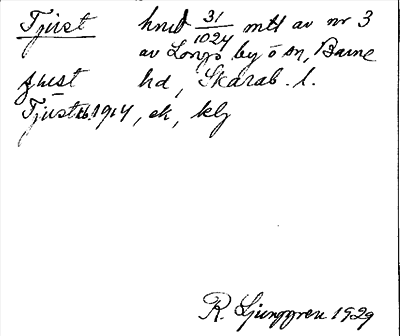 Tjust hmd 31/1024 mtl av nr 3
av Longs by ö sn, Barne
just hd, Skarab. l.
Tjust 1914, ek, klg
R. Ljunggren 1929